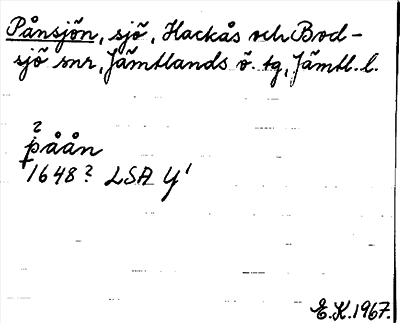 Pånsjön, sjö, Hackås och Bod-
sjö snr, Jämtlands ö. tg, Jämtl. l.
?
påån
1648? LSA Y'
E.K. 1967.